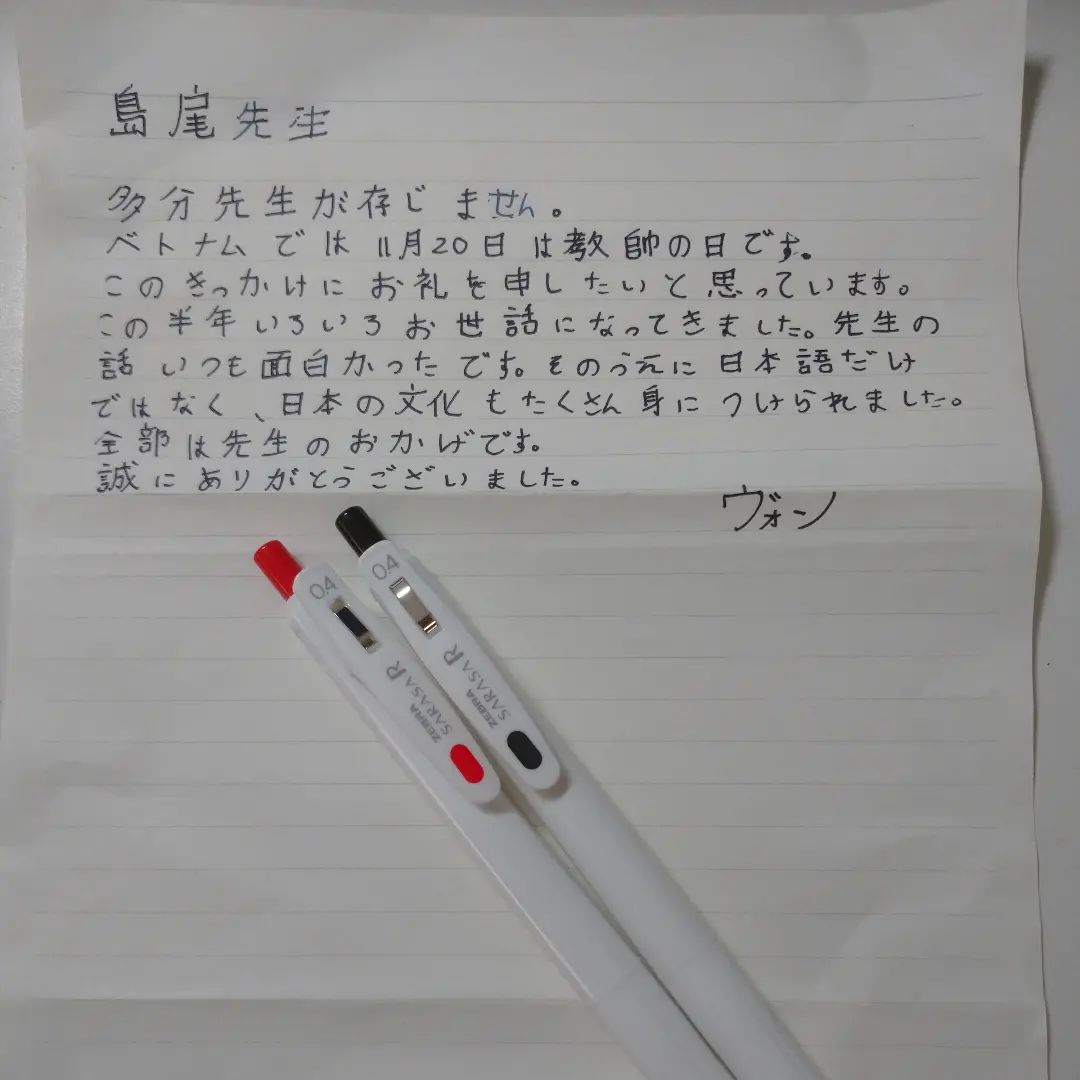 島尾先生
多分先生が存じません。
ベトナムでは11月20日は教師の日です。
このきっかけにお礼を申したいと思っています。
この半年いろいろお世話になってきました。先生の
話いつも面白かったです。そのうえに日本語だけ
ではなく、日本の文化もたくさん身につけられました。
全部は先生のおかげです。
誠にありがとうございました。
ヴォン
0.4
ZEBRA
SARASA R
0.4
ZEBRA
SARASA R